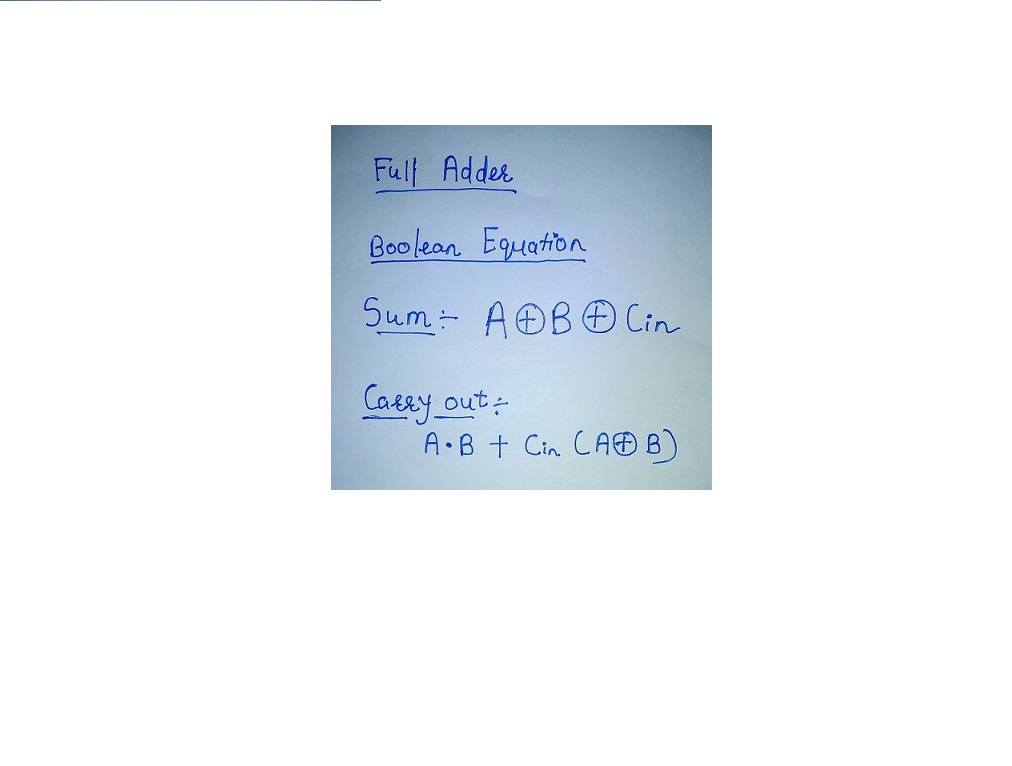 Full Adder
Boolean Equation
Sum :- A⊕B⊕Cin
Carry out :-
A·B + Cin (A⊕B)